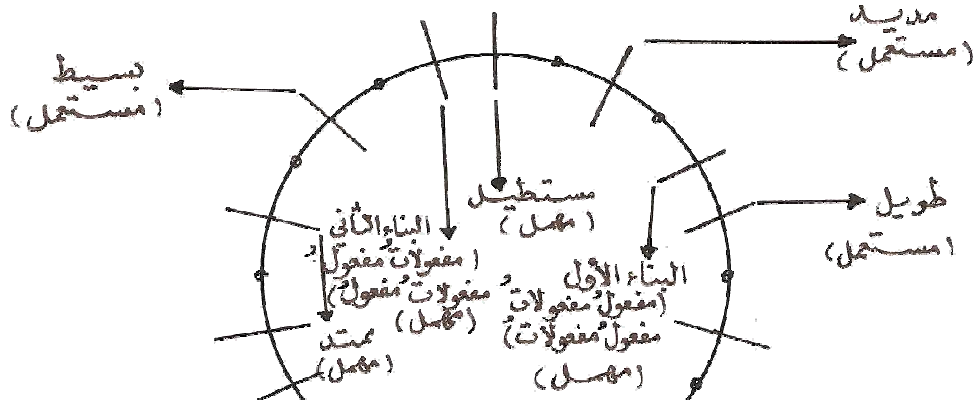 مديد
(مستعمل)
بسيط
(مستعمل)
مستطيل
(مهمل)
طويل
(مستعمل)
البناء الثاني
(مفعولاتُ مفعولُ
مفعولاتُ مفعولُ)
(مهمل)
البناء الأول
(مفعولُ مفعولاتُ
مفعولُ مفعولاتُ)
(مهمل)
ممتد
(مهمل)